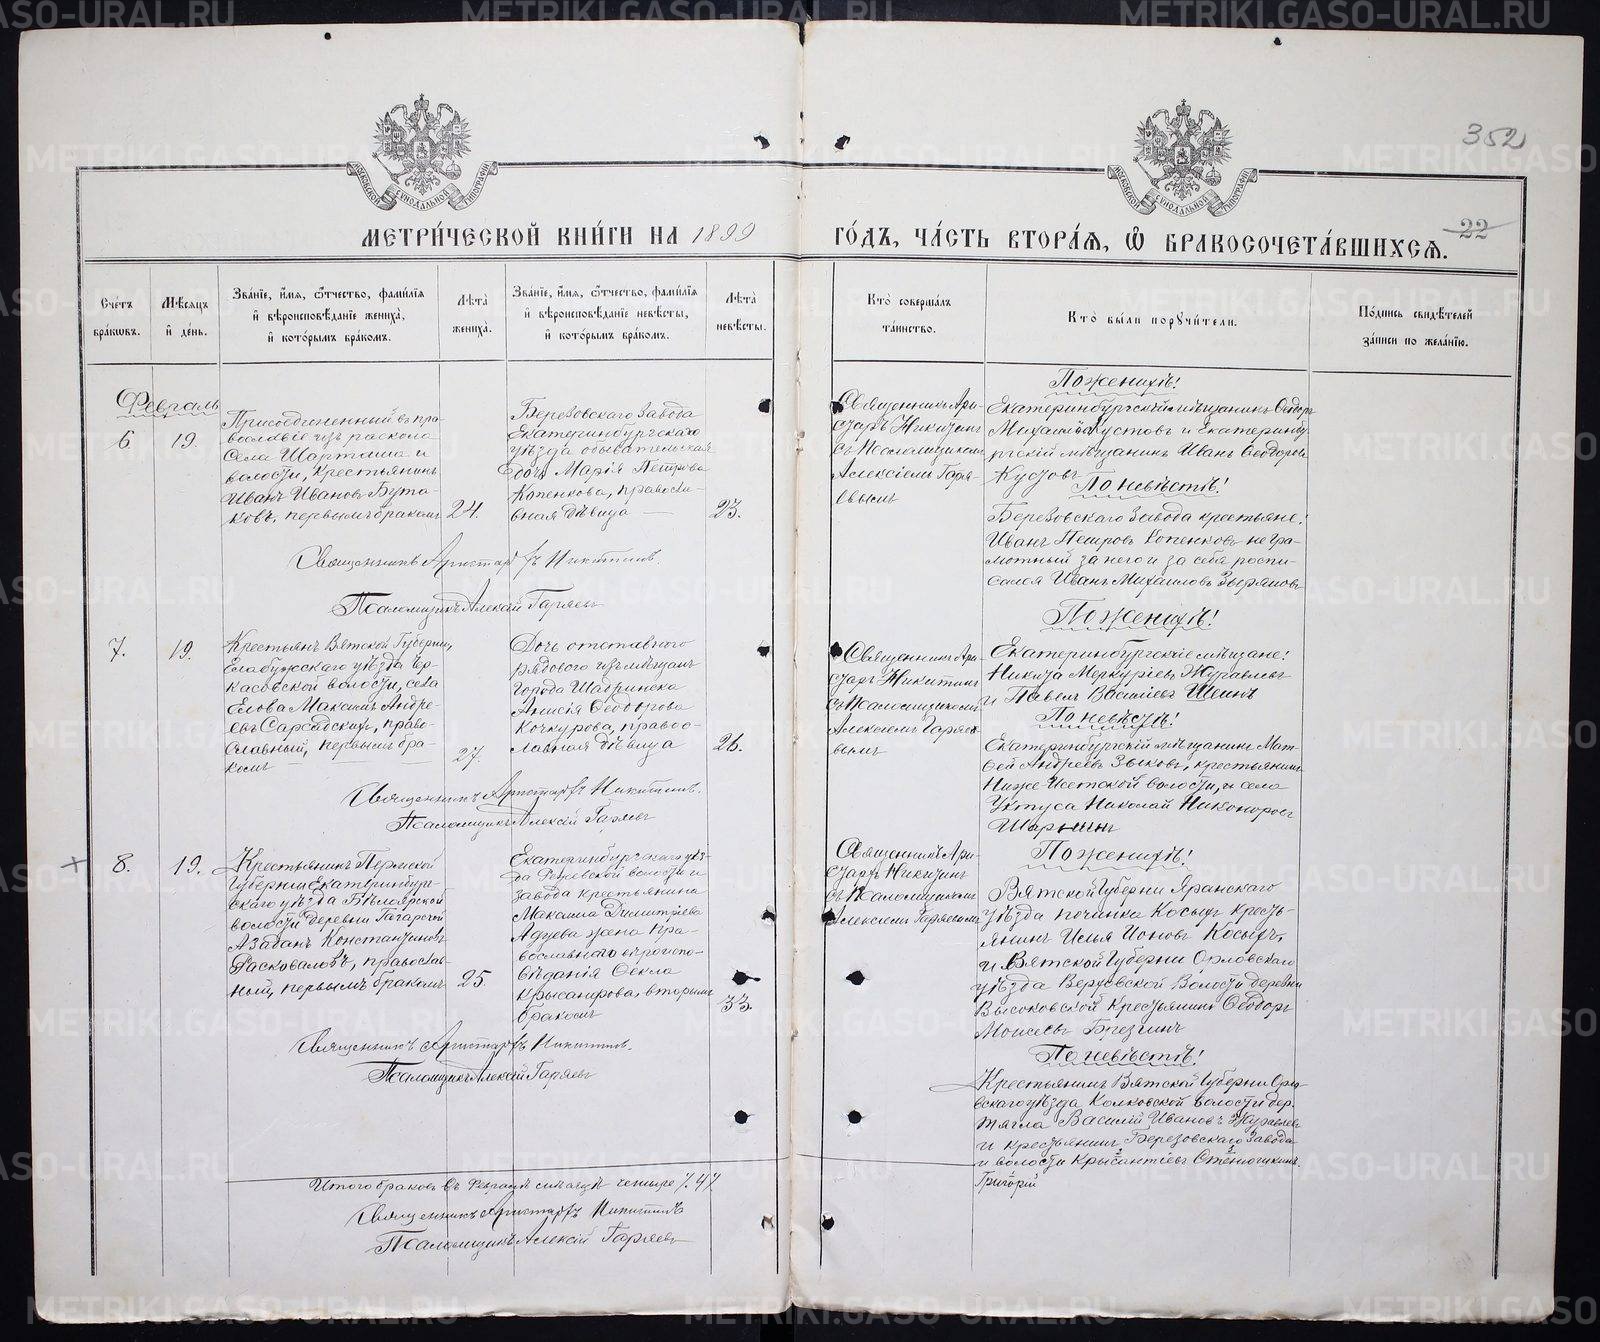 352
22
МЕТРИЧЕСКОЙ КНИГИ НА 1899
ГОДЪ, ЧАСТЬ ВТОРАЯ, Ѿ БРАКОСОЧЕТАВШИХСЯ.
Счетъ браковъ.
Мѣсяцъ и день.
Званіе, имя, отчество, фамилія и вѣроисповѣданіе жениха, и которымъ бракомъ.
Лѣта жениха.
Званіе, имя, отчество, фамилія и вѣроисповѣданіе невѣсты, и которымъ бракомъ.
Лѣта невѣсты.
Кто совершалъ таинство.
Кто были поручители.
Подпись свидѣтелей записи по желанію.
Февраль
6
19.
Присоединенный въ пра-
вославіе изъ раскола
Села Шарташа и
волости, крестьянинъ
Иванъ Ивановъ Бута
ковъ, первымъ бракомъ
24.
Березовскаго Завода
Екатеринбургскаго
уѣзда обывательская
дочь Марія Петрова
Копенкова, правосла-
вная дѣвица
23.
Священникъ Ари-
стархъ Никитинъ
съ Псаломщикомъ
Алексіемъ Гаря-
евымъ
По женихѣ!
Екатеринбургскій мѣщанинъ Ѳедоръ
Михаиловъ Кустовъ и Екатеринбу
ргскій мѣщанинъ Иванъ Ѳеодоровъ
Кустовъ
По невѣстѣ!
Березовскаго Завода крестьяне:
Иванъ Петровъ Копенковъ негра-
мотный за него и за себя роспи-
сался Иванъ Михаиловъ Зыряновъ
Священникъ Аристархъ Никитинъ.
Псаломщикъ Алексій Гаряевъ
7.
19.
Крестьянъ Вятской Губерніи,
Елабужскаго уѣзда
касовской волости, села
Елова Максимъ Андре-
евъ Сарсадскихъ, право-
славный, первымъ бра-
комъ
27.
Дочь отставного
рядового изъ мѣщанъ
города Шадринска
Анисія Ѳеодорова
Кочкурова, правос-
лавная дѣвица
26.
Священникъ Ари-
стархъ Никитинъ
съ Псаломщикомъ
Алексіемъ Гаряе-
вымъ
По женихѣ!
Екатеринбургскіе мѣщане:
Никита Меркуріевъ Журавлевъ
и Павелъ Васильевъ Шеинъ
По невѣстѣ!
Екатеринбургскій мѣщанинъ Мат-
ѳей Андреевъ Зыковъ, крестьянинъ
Ниже Исетской волости, и села
Уктуса Николай Никоноровъ
Шарынинъ
Священникъ Аристархъ Никитинъ.
Псаломщикъ Алексій Гаряевъ
8.
19.
Крестьянинъ Пермской
Губерніи Екатеринбург-
скаго уѣзда Бѣлоярской
волости деревни Гагарской
Константиновъ
Расковаловъ, православ-
ный, первымъ бракомъ
25.
Екатеринбургскаго уѣз-
да Режевской волости и
завода крестьянина
Максима Димитріева
жена пра-
вославнаго вѣроиспо-
вѣданія Ѳекла
вторымъ
бракомъ
33.
Священникъ Ари-
стархъ Никитинъ
съ Псаломщикомъ
Алексіемъ Гаряевымъ
По женихѣ!
Вятской Губерніи Яранскаго
уѣзда починка Косыхъ кресть-
янинъ Илья Іоновъ Косыхъ,
и Вятской Губерніи Орловскаго
уѣзда Волости деревни
Высоковской Крестьянинъ Ѳеодоръ
Моисеевъ Брезгинъ
По невѣстѣ!
Крестьянинъ Вятской Губерніи Орло-
вскаго уѣзда Колковской волости дер.
Василій Ивановъ Журавлевъ
и крестьянинъ Березовскаго Завода
и волости
Григорій
Священникъ Аристархъ Никитинъ.
Псаломщикъ Алексій Гаряевъ
Итого браковъ въ Февралѣ мѣсяцѣ четыре
Священникъ Аристархъ Никитинъ
Псаломщикъ Алексій Гаряевъ
METRIKI.GASO-URAL.RU